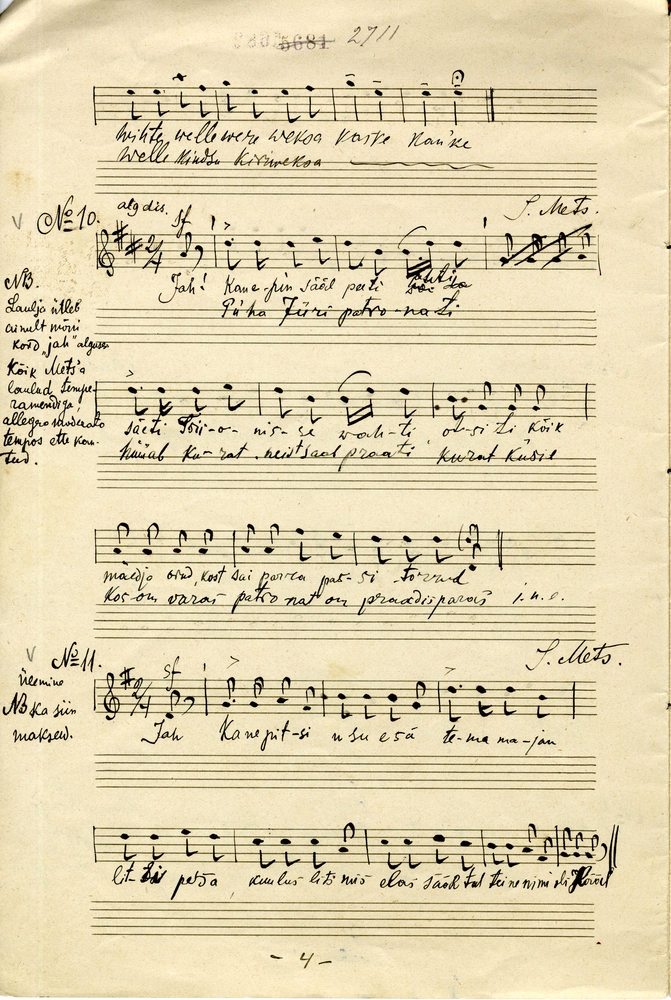 5681 2711
welle were weksa kaske kanke
welle kindsu kirweksa
No 10. alg dis. sf S. Mets.
Jah! Kane-pin sääl peeti
Püha Jüri patro-na ti
NB.
Laulja ütleb
ainult mõni
kord „jah" alguses
Kõik Mets'a
laulud tempe-
ramendiga,
allegro moderato
tempos ette kan-
tud.
säeti nis-se wah-ti ot-si ti kõik
ku-rat neist saal praati kurat küsie
mäedja kost sai parra pat-si
Kos om varas patro nat om praadis paras i.n.e.
No 11. sf S. Mets.
ülemine
NB ka siin
maksew.
Jah Kanepit-si usu esä te-ma ma-jan
lit-sis petsa, kuulus lits mis elas sääl tal teine nimi oli
- 4 -